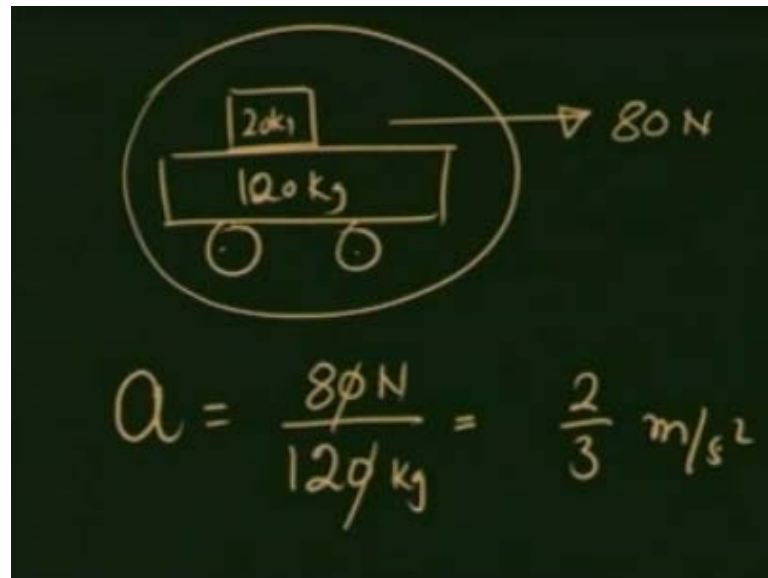 20kg
80 N
100 kg
a = 80 N / 120 kg = 2/3 m/s²